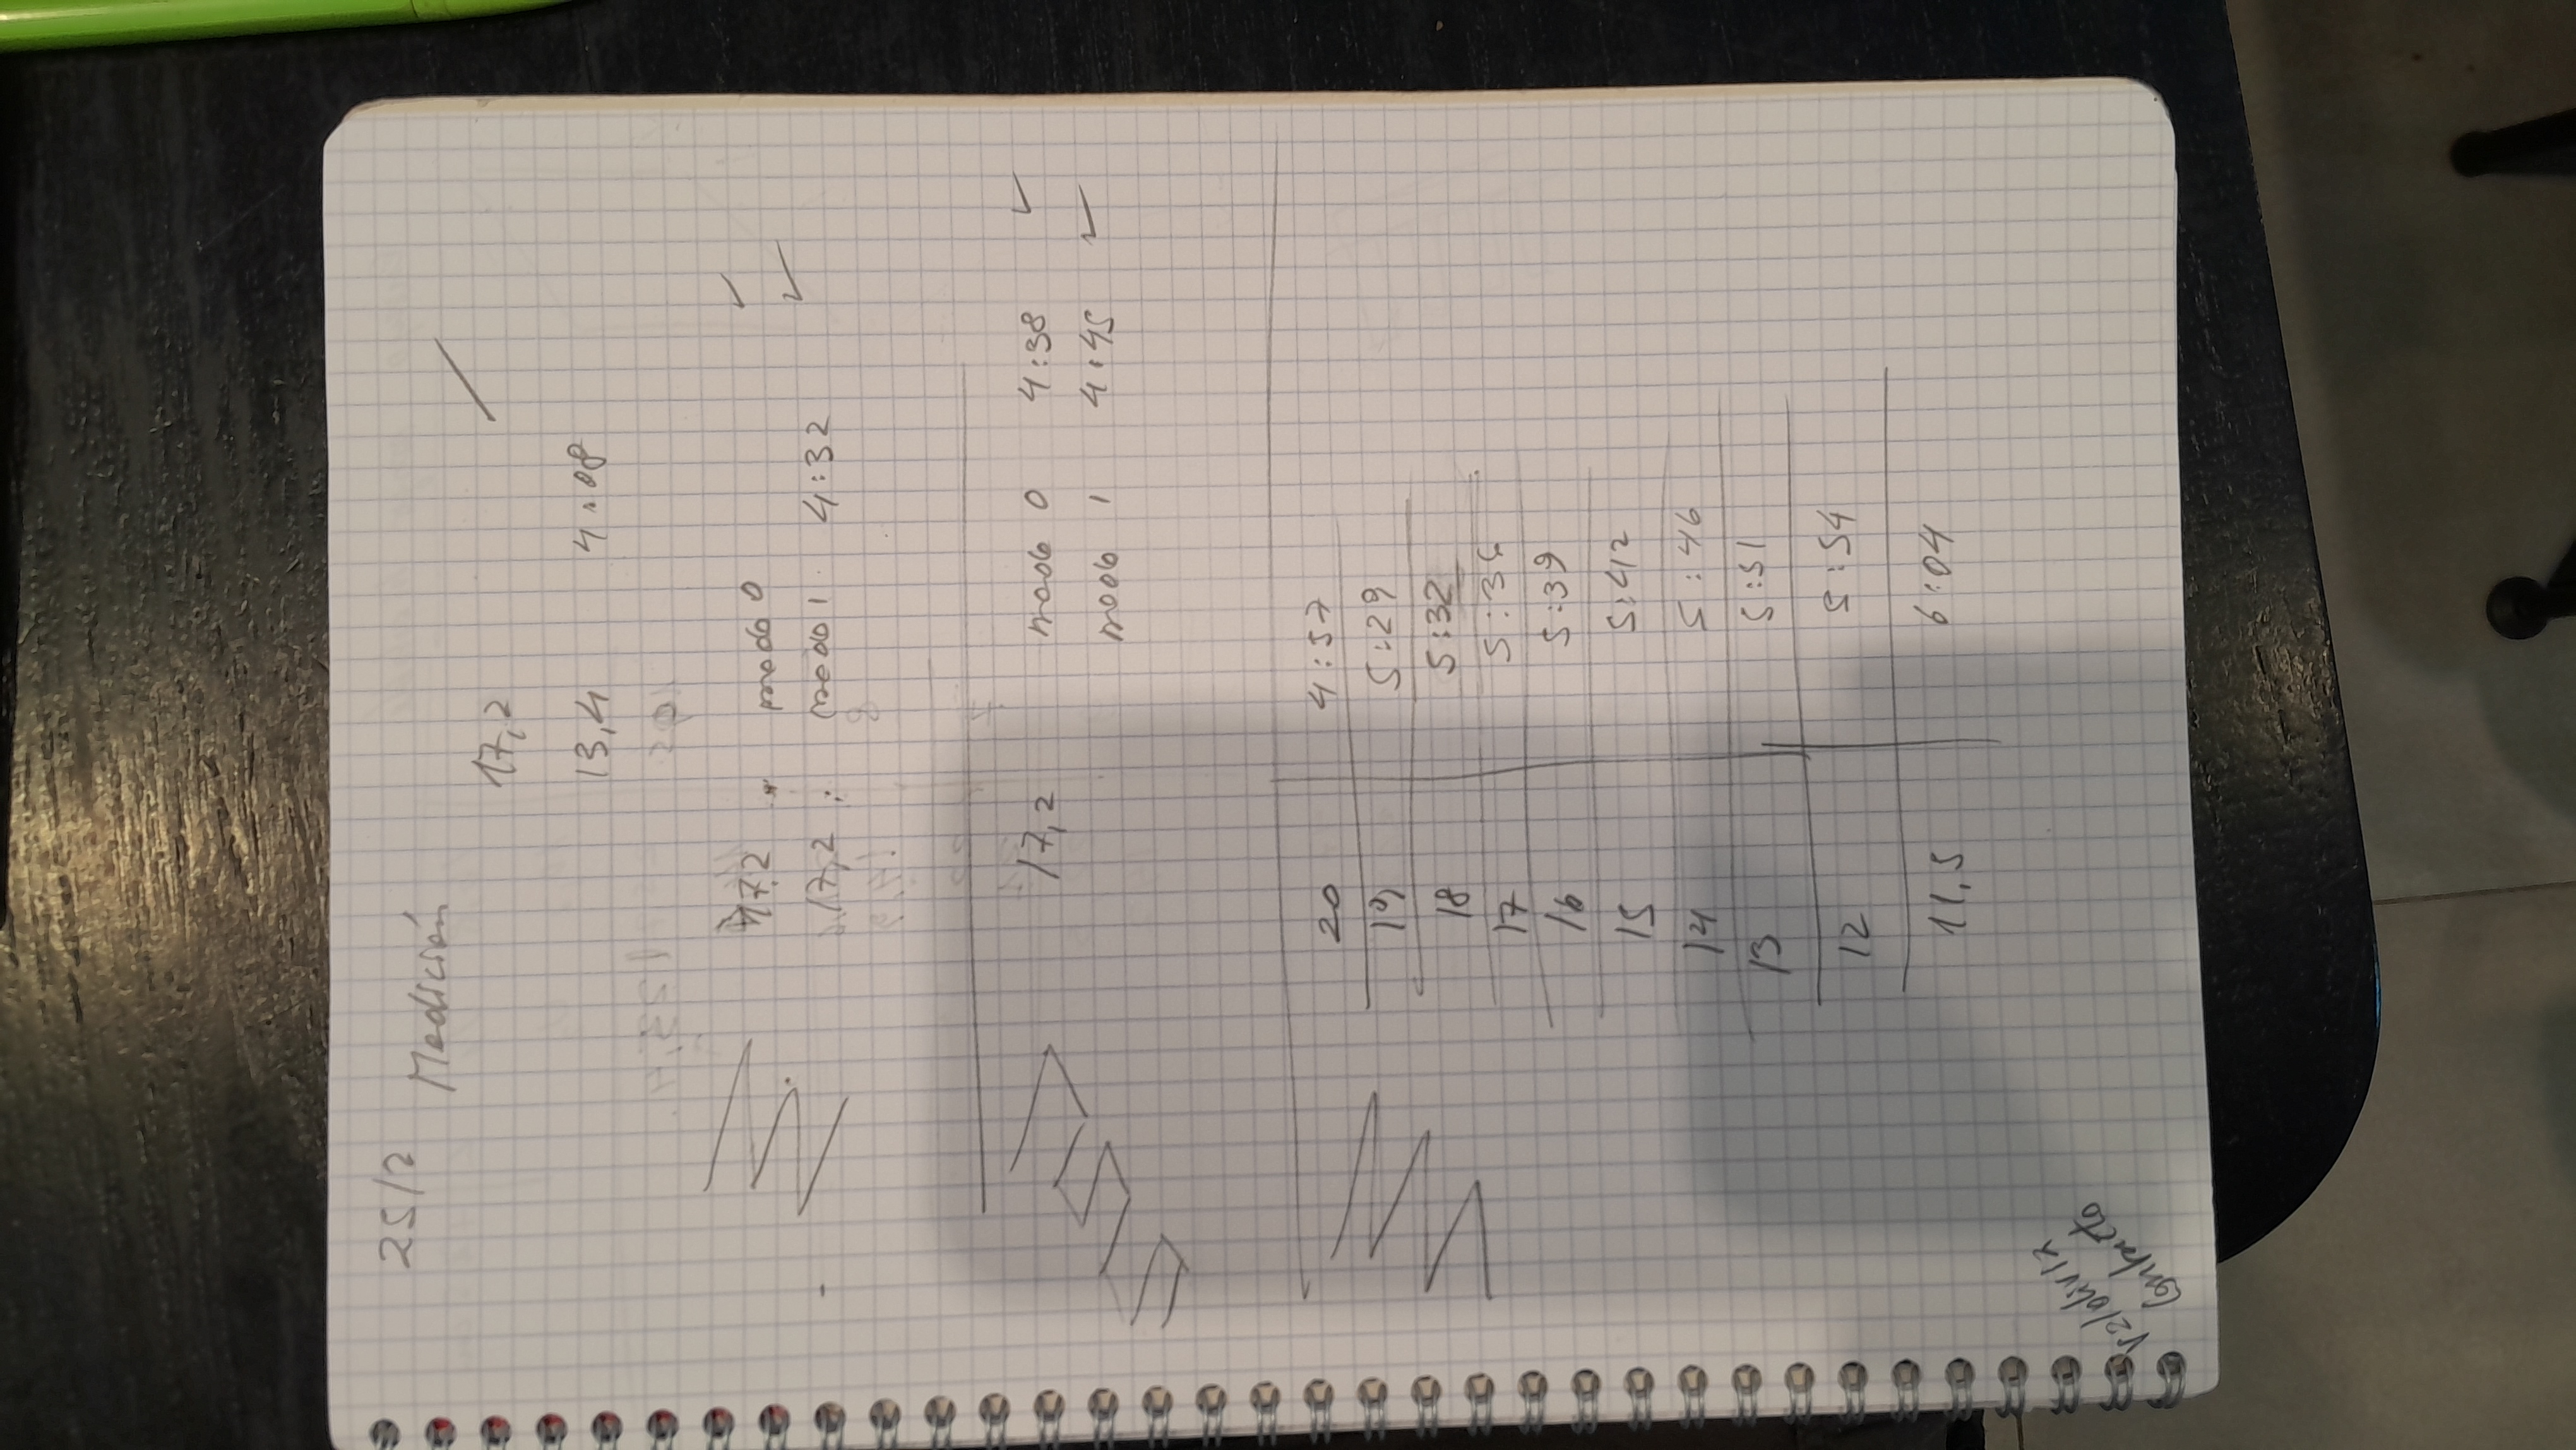 25/2
Medición
17,2
13,4 4:08
17,2 : modo 0
17,2 : modo 1 4:32
17,2 modo 0 4:38
modo 1 4:45
20 4:57
19 5:29
18 5:32
17 5:36
16 5:39
15 5:42
14 5:46
13 5:51
12 5:54
11,5 6:04
contacto